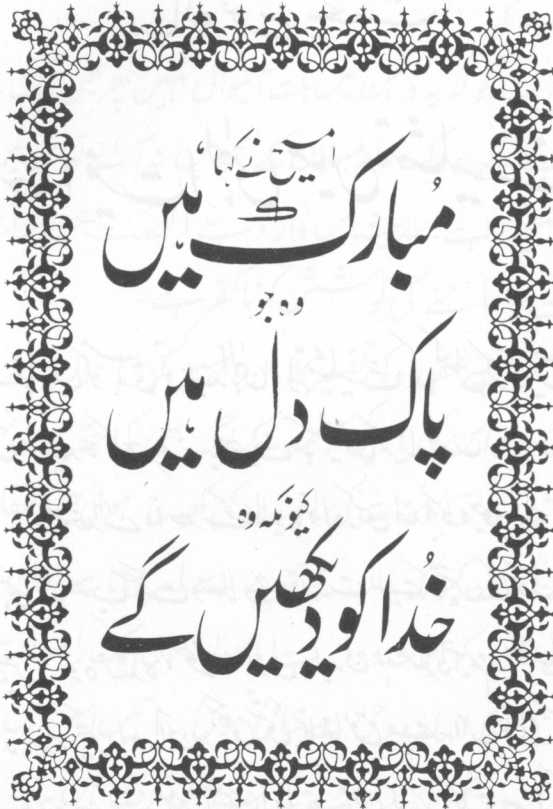 المسیح نے کہا
مُبارک ہیں
وہ جو
پاک دل ہیں
کیونکہ وہ
خُدا کو دیکھیں گے